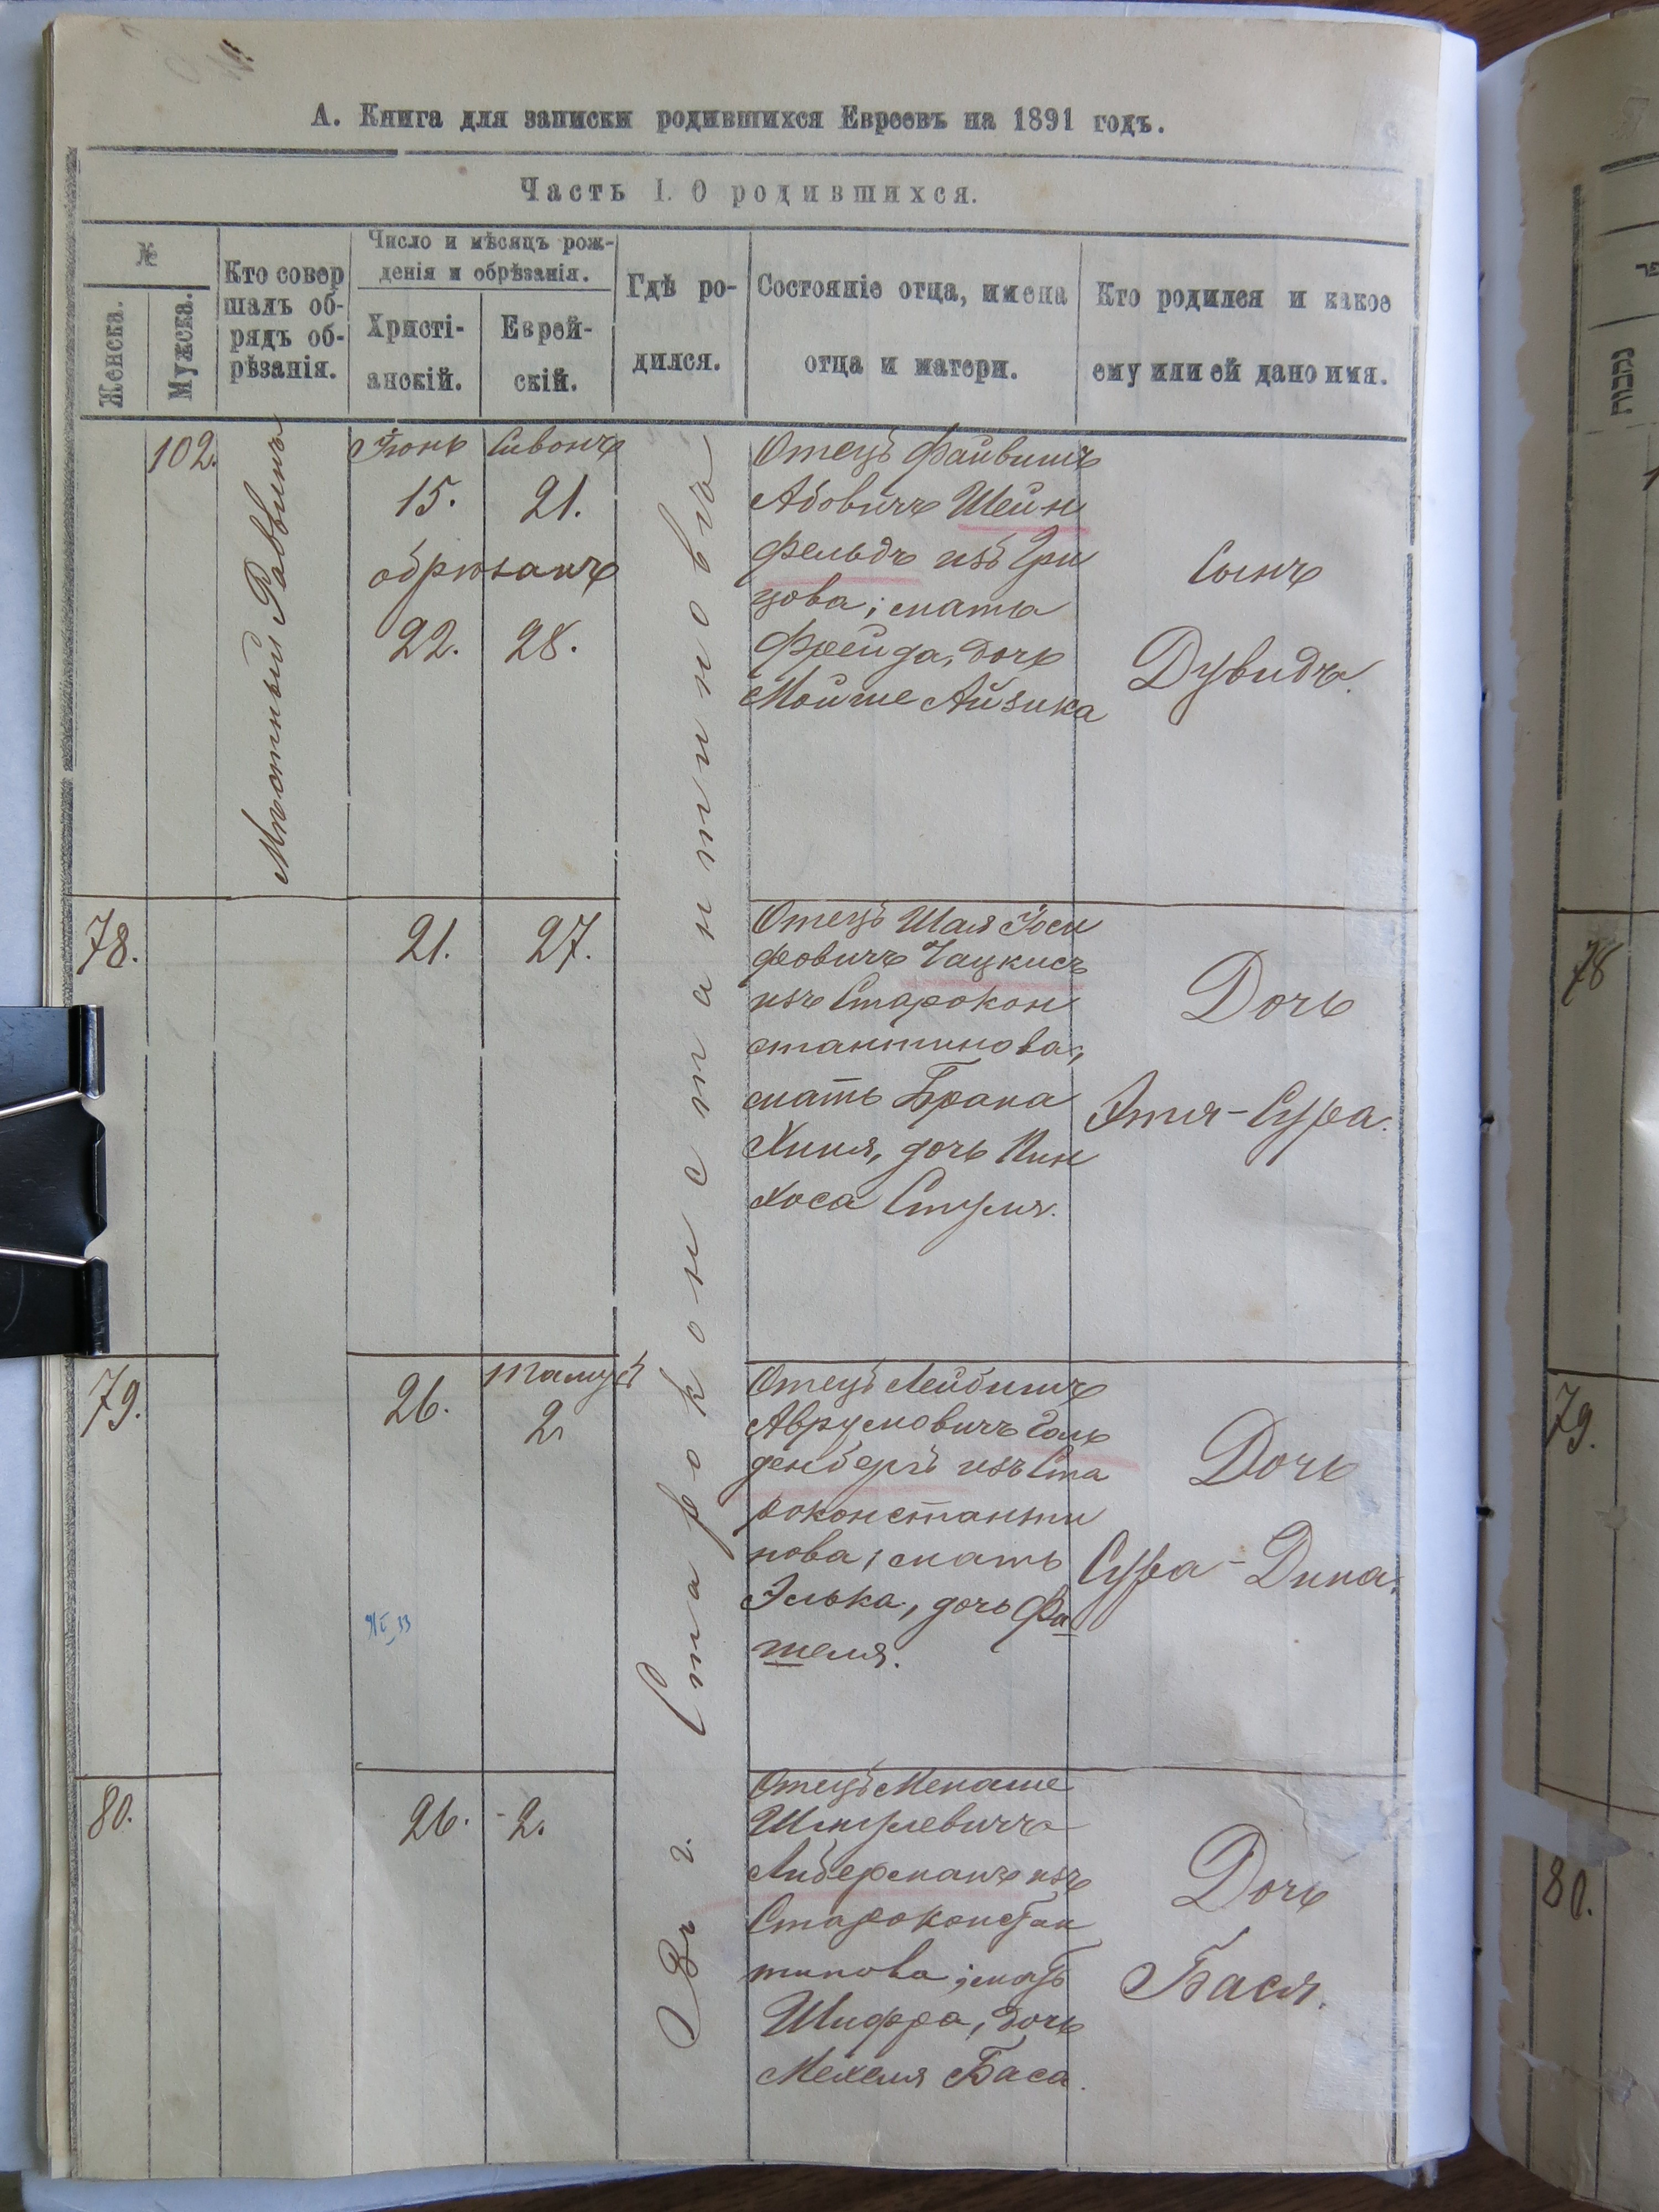 А. Книга для записки родившихся Евреевъ на 1891 годъ.
Часть I. О родившихся.
№
Женска.
Мужска.
Кто совер
шалъ об-
рядъ об-
рѣзанія.
Число и мѣсяцъ рож-
денія и обрѣзанія.
Христі-
анскій.
Еврей-
скій.
Гдѣ ро-
дился.
Состояніе отца, имена
отца и матери.
Кто родился и какое
ему или ей дано имя.
102.
Мѣстный Раввинъ
Іюнь Сивонъ
15. 21.
обрѣзанъ
22. 28.
Въ г. Староконстантиновѣ
Отецъ Файвишъ
Абовичъ Шейн
фельдъ изъ Гри
цова; мать
Фрейда, дочь
Мойше Айзика
Сынъ
Дувидъ.
78.
21. 27.
Отецъ Шая Іоси
фовичъ Чацкисъ
изъ Старокон
стантинова;
мать Брана
Хиня, дочь Пин
хоса
Дочь
Этя-Сура.
79.
26.
Тамузъ
2
Отецъ Лейбишъ
Аврумовичъ Голь
денбергъ изъ Ста
роконстанти
нова; мать
Элька, дочь Фа
теля.
Дочь
Сура-Дина.
80.
26. 2.
Отецъ Менаше
Шмулевичъ
Либерманъ изъ
Староконстан
тинова; мать
Шифра, дочь
Мехеля Баса.
Дочь
Бася.
78
79.
80.